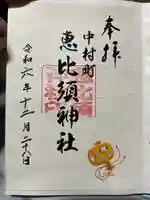 奉拝
中村町
恵比須神社
令和六年十二月二十八日